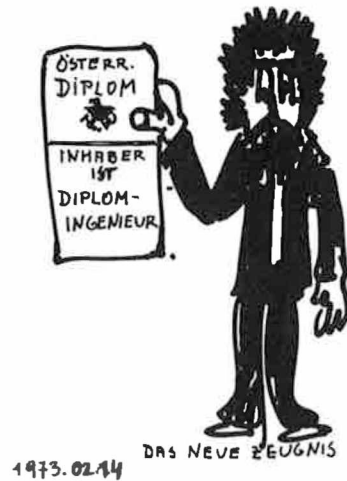 ÖSTERR.
DIPLOM
INHABER
IST
DIPLOM-
INGENIEUR
DAS NEUE ZEUGNIS
1973.02.14